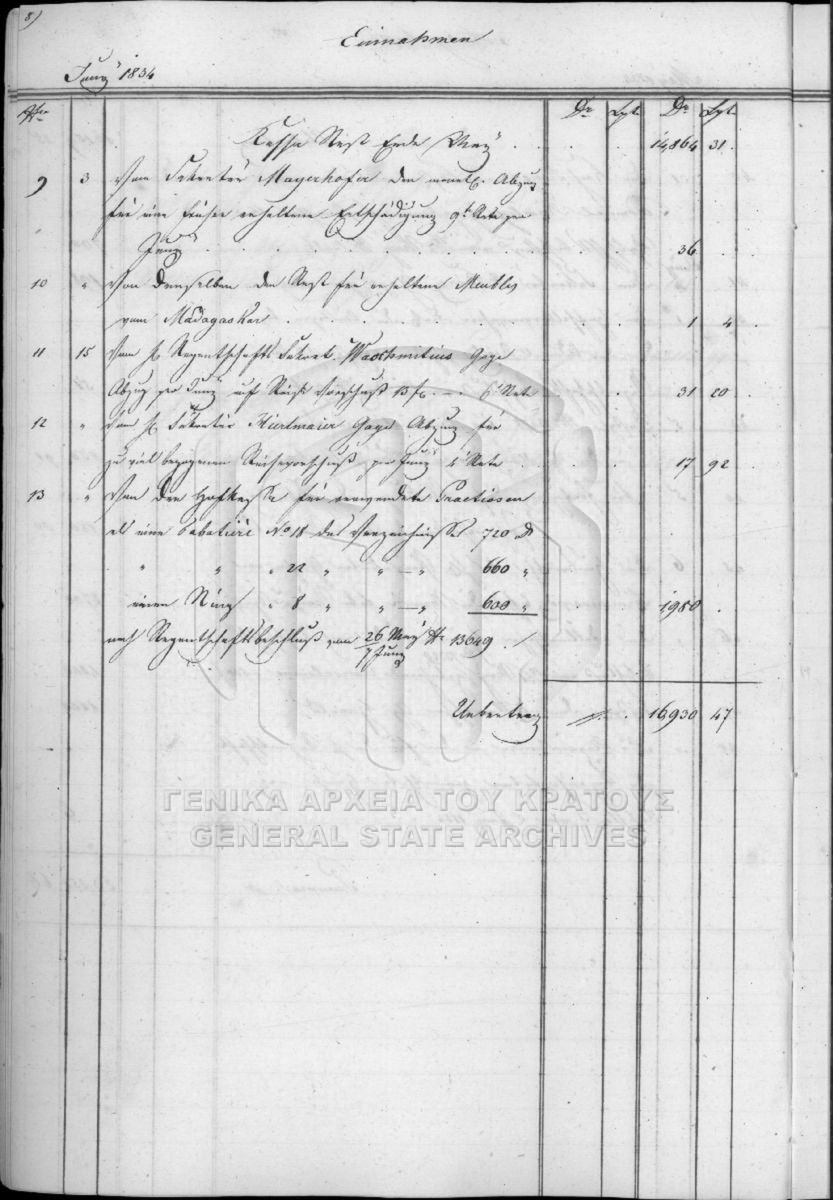 8)
Einnahmen
Juny 1834
Nro Dr. Lpt. Dr. Lpt.
Kassa Rest Ende May 14,864 31
9 3 Vom Sekretär Mayerhofer den monatl. Abzug
für eine früher erhaltene Entschädigung 9te Rate pro
Juny 36
10 " Von demselben den Rest für erhaltene Meubles
vom Madagaskar 1 4
11 15 Vom H. Regentschafts Sekret. Gage
Abzug pro Juny auf Reise Vorschuß 13 f. 6te Rate 31 20
12 " Von H. Sekretär Gage Abzug für
zu viel bezogenen Reisevorschuß pro Juny Rate 17 92
13 " Von der Hofkassa für verwendete Praetiosen
als eine Tabatiere No 18 des Verzeichnisses 720 Dr
" " " 22 " " — " 660 "
einen Ring " 8 " " — " 600 " 1980
nach Regentschaftsbeschluß vom 26 May / 7 Juny No 13649
Uebertrag 16,930 47
ΓΕΝΙΚΑ ΑΡΧΕΙΑ ΤΟΥ ΚΡΑΤΟΥΣ
GENERAL STATE ARCHIVES